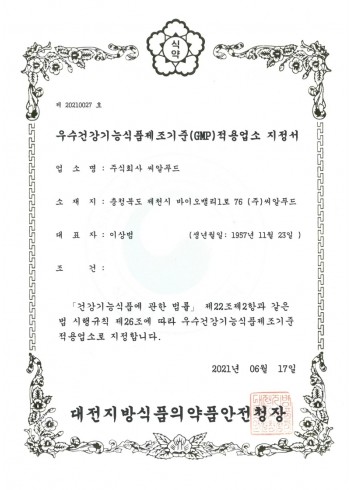 식약
제 20210027 호
우수건강기능식품제조기준(GMP)적용업소 지정서
업 소 명 : 주식회사 씨알푸드
소 재 지 : 충청북도 제천시 바이오밸리1로 76 (주)씨알푸드
대 표 자 : 이상범 ( 생년월일: 1957년 11월 23일 )
조 건 :
「건강기능식품에 관한 법률」 제22조제2항과 같은
법 시행규칙 제26조에 따라 우수건강기능식품제조기준
적용업소로 지정합니다.
2021년 06월 17일
대전지방식품의약품안전청장